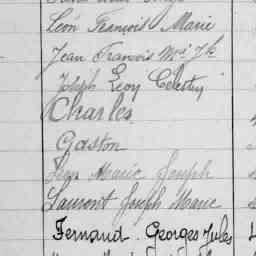 Léon François Marie
Jean François Mie Jh
Joseph Léon Célestin
Charles
Gaston
Jean Marie Joseph
Laurent Joseph Marie
Fernand Georges Jules